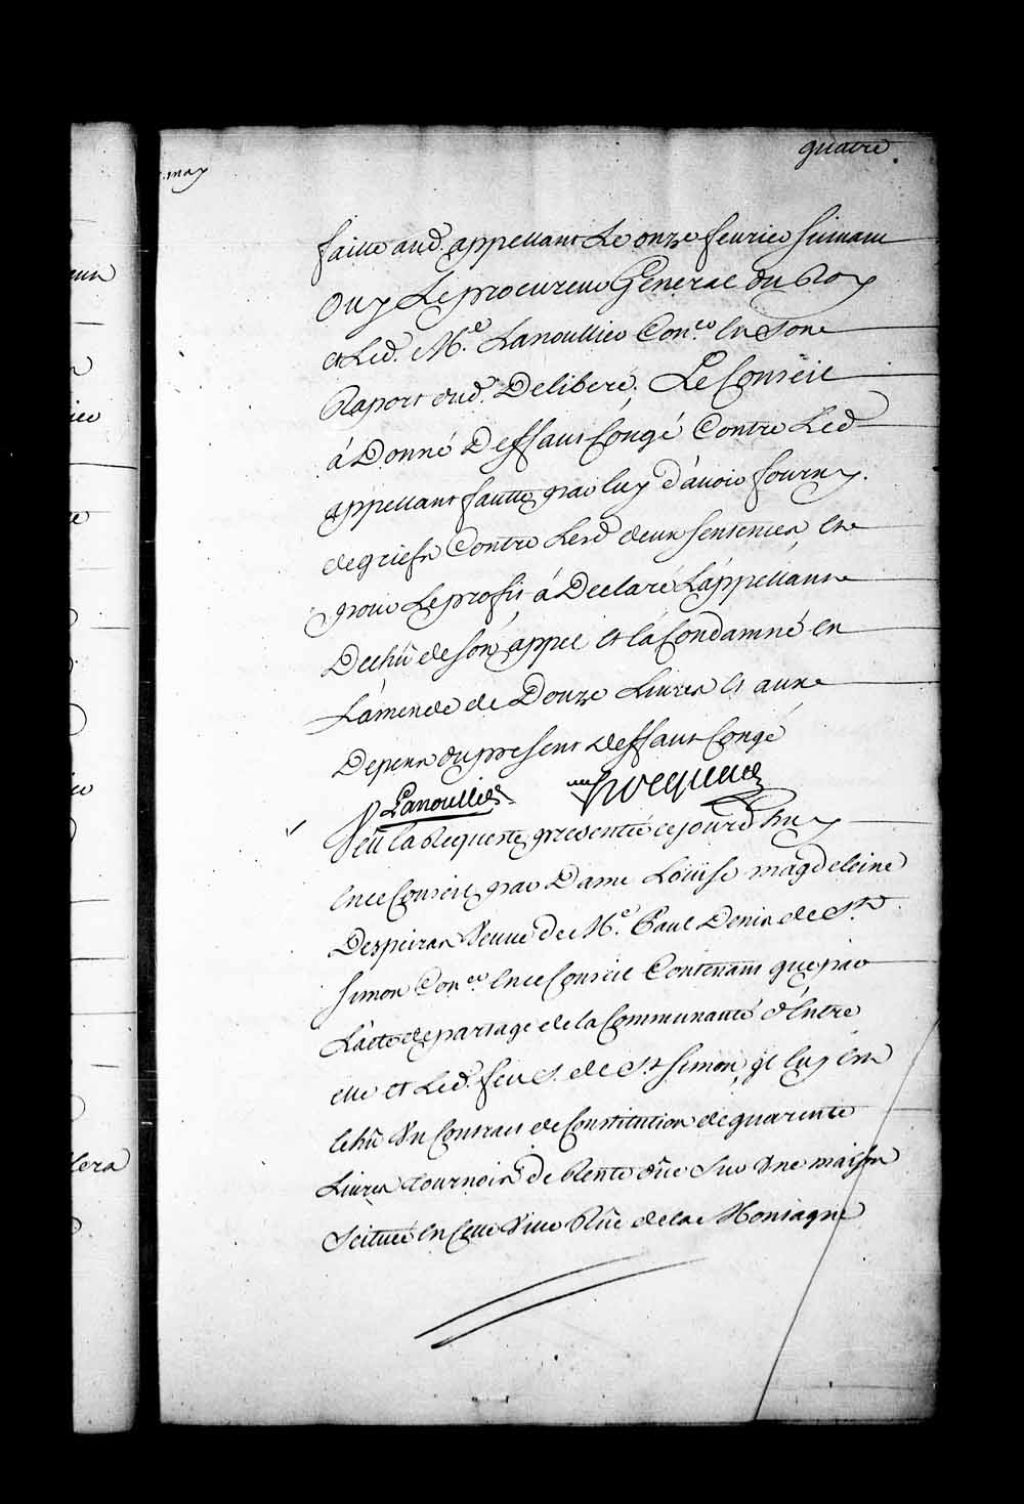 quatre
may
faitte aud. appellant Le onze feurier suiuant
Ouy Le procureur General du Roy
et Led. Me. Lanoullier Coner. En Son
Raport dud. Deliberé; Le Conseil
à Donné Deffaut Congé Contre Led
appellant fautte par luy d'auoir fourny
de griefs Contre Lesd deux sentences, Et
pour Le profit à Declaré L'appellant
Dechû de son appel et la Condamné En
L'amende de Douze Liures Et aux
Depens du present deffaut Congé
Lanoullier hocquart
Veu la Requeste presentée ce jourd'huy
En ce Conseil par Dame Loüise magdeleine
Despeiras Veuue de Me. Paul Denis de St
Simon Coner. En ce Conseil Contenant que par
L'acte de partage de la Communauté d'Entre
elle et Led. feu S. de St Simon, il luy Est
Echû Vn Contrat de Constitution de quarente
Liures tournois de Rente düe Sur Vne maison
Scituée En Cette Ville Rüe de la Montagne
mun
ier
lera